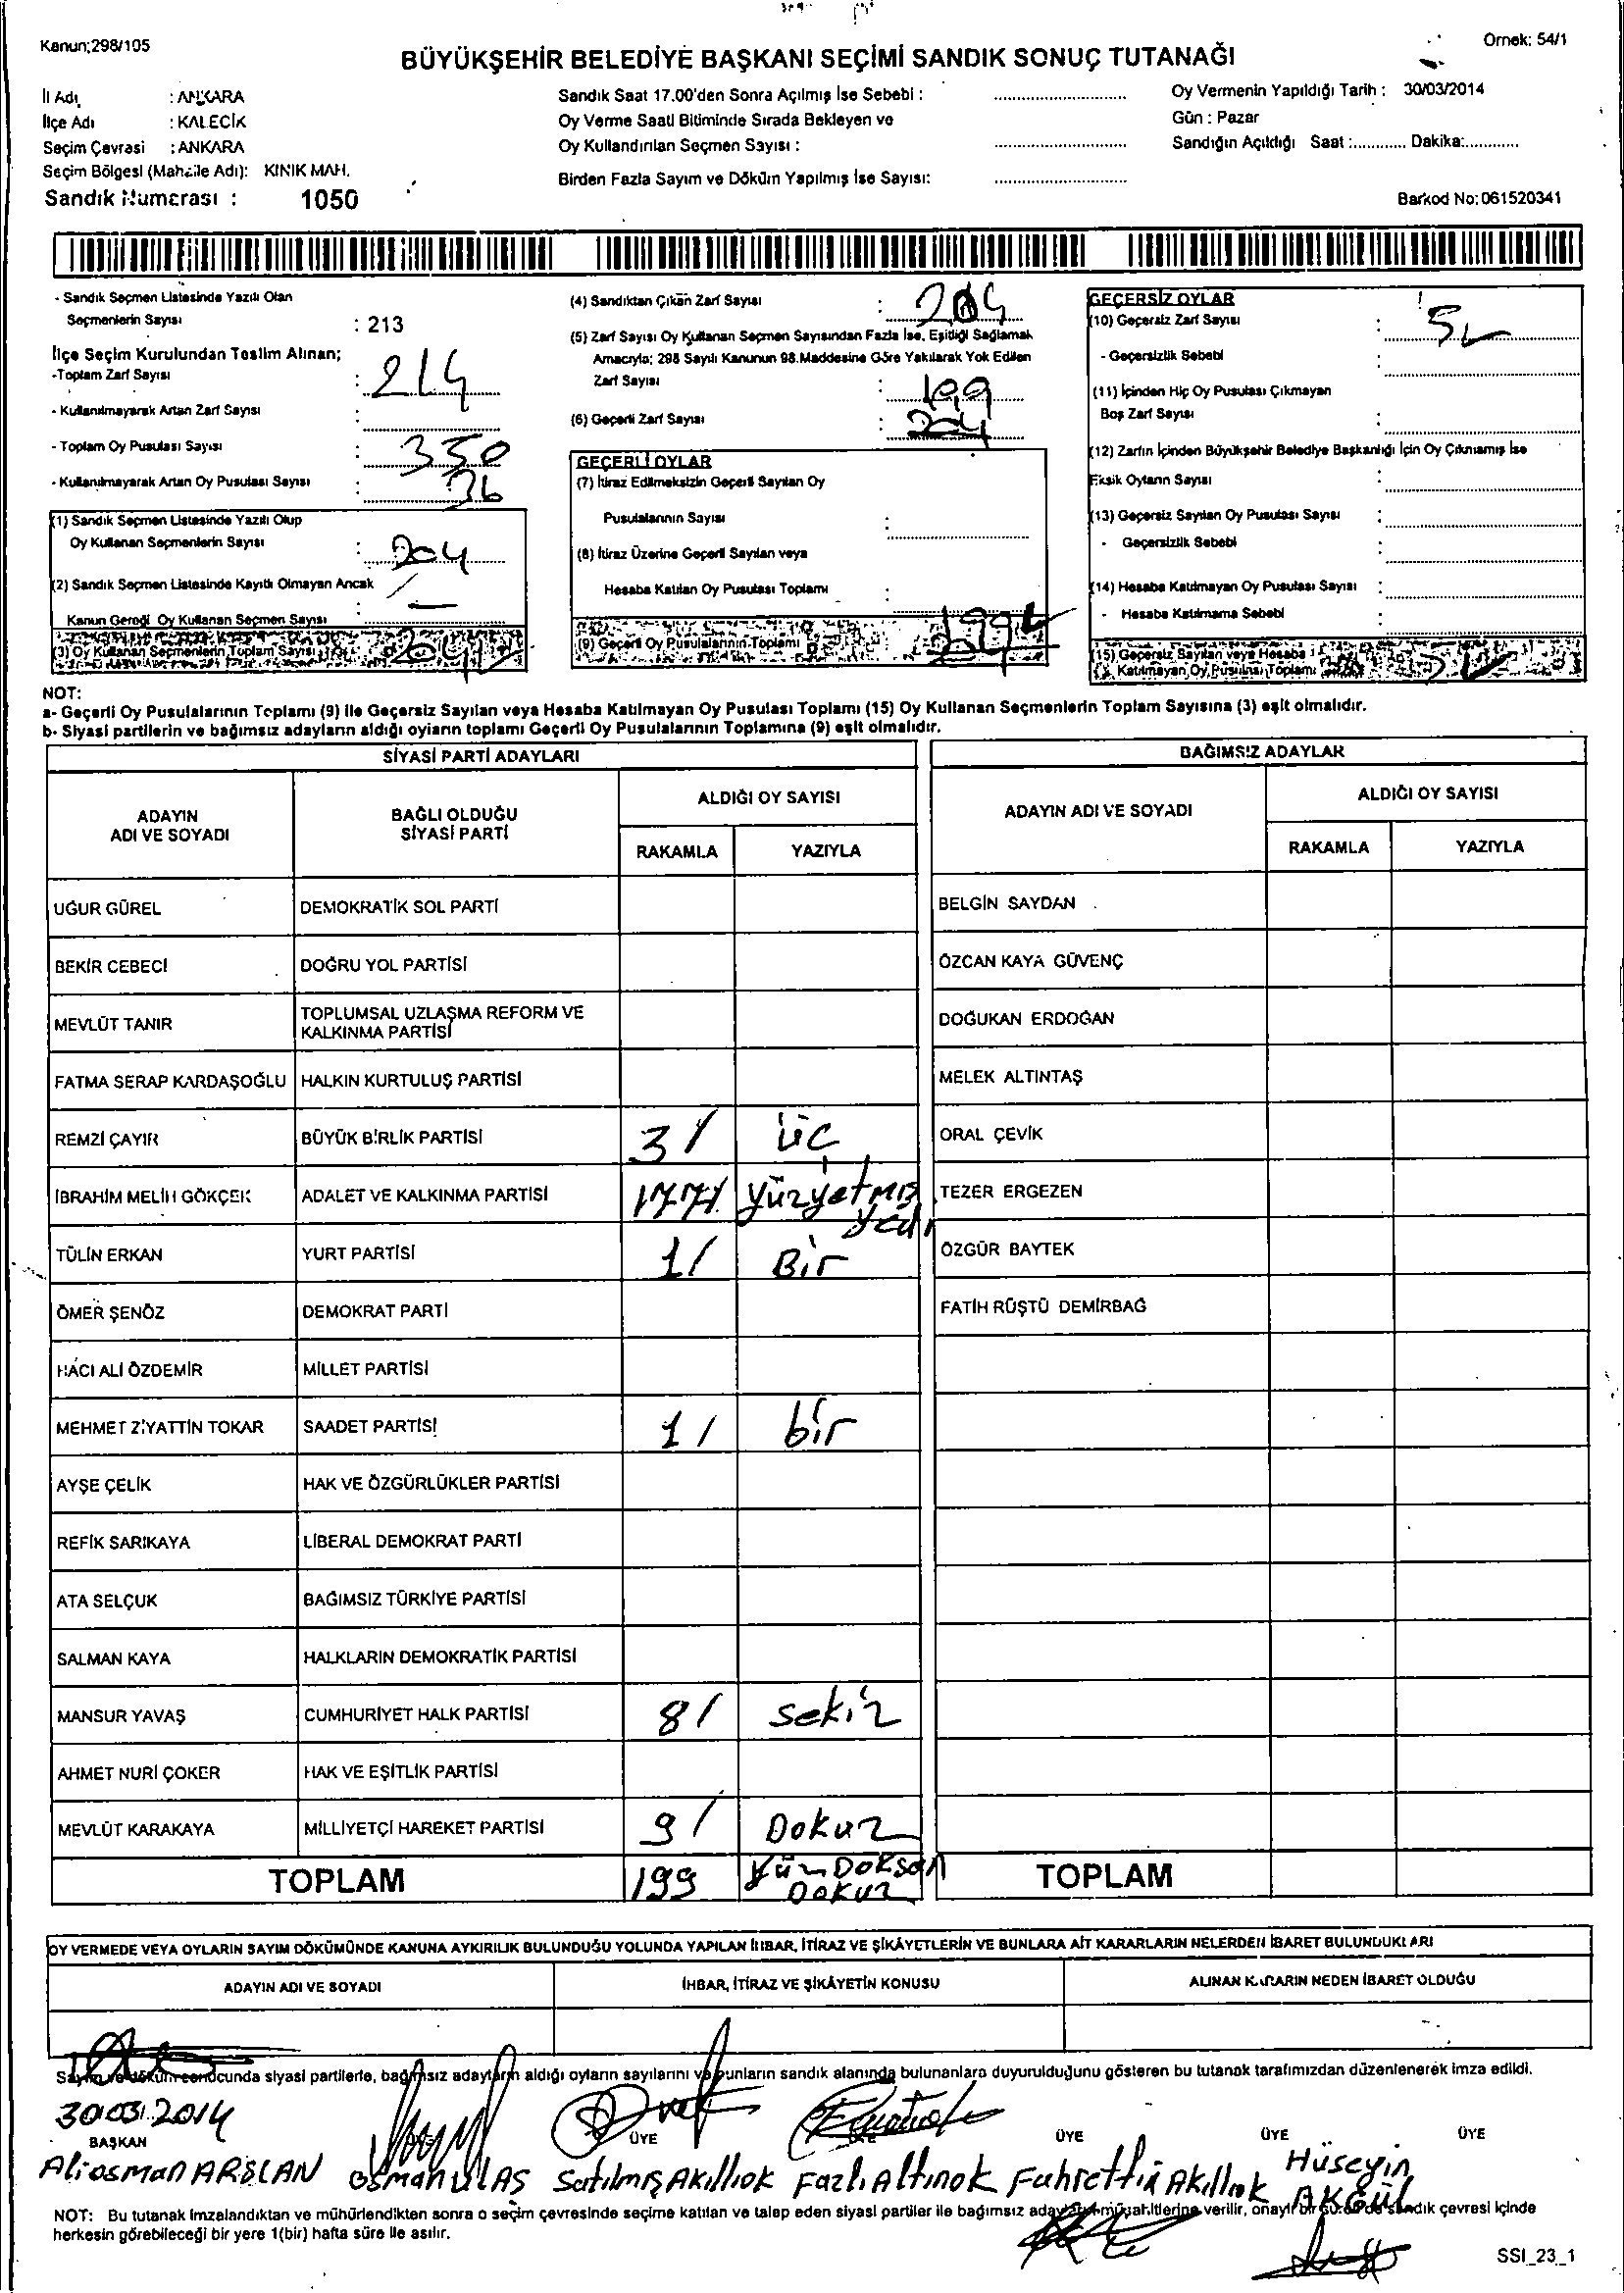 Kanun;298/105
Örnek: 54/1
BÜYÜKŞEHİR BELEDİYE BAŞKANI SEÇİMİ SANDIK SONUÇ TUTANAĞI
İl Adı : ANKARA
İlçe Adı : KALECİK
Seçim Çevrasi : ANKARA
Seçim Bölgesi (Mahalle Adı): KINIK MAH.
Sandık Numarası : 1050
Sandık Saat 17.00'den Sonra Açılmış İse Sebebi :
Oy Verme Saati Bitiminde Sırada Bekleyen ve
Oy Kullandırılan Seçmen Sayısı :
Birden Fazla Sayım ve Döküm Yapılmış İse Sayısı:
Oy Vermenin Yapıldığı Tarih : 30/03/2014
Gün : Pazar
Sandığın Açıldığı Saat :............ Dakika:............
Barkod No: 061520341
- Sandık Seçmen Listesinde Yazılı Olan
Seçmenlerin Sayısı : 213
İlçe Seçim Kurulundan Teslim Alınan;
-Toplam Zarf Sayısı : 214
- Kullanılmayarak Artan Zarf Sayısı :
- Toplam Oy Pusulası Sayısı : 350
- Kullanılmayarak Artan Oy Pusulası Sayısı :
(1) Sandık Seçmen Listesinde Yazılı Olup
Oy Kullanan Seçmenlerin Sayısı : 204
(2) Sandık Seçmen Listesinde Kayıtlı Olmayan Ancak
Kanun Gereği Oy Kullanan Seçmen Sayısı : —
(3) Oy Kullanan Seçmenlerin Toplam Sayısı : 204
(4) Sandıktan Çıkan Zarf Sayısı : 204
(5) Zarf Sayısı Oy Kullanan Seçmen Sayısından Fazla İse, Eşitliği Sağlamak
Amacıyla; 298 Sayılı Kanunun 98.Maddesine Göre Yakılarak Yok Edilen
Zarf Sayısı :
(6) Geçerli Zarf Sayısı : 199
204
GEÇERLİ OYLAR
(7) İtiraz Edilmeksizin Geçerli Sayılan Oy
Pusulalarının Sayısı :
(8) İtiraz Üzerine Geçerli Sayılan veya
Hesaba Katılan Oy Pusulası Toplamı :
(9) Geçerli Oy Pusulalarının Toplamı 199
GEÇERSİZ OYLAR
(10) Geçersiz Zarf Sayısı : 5
- Geçersizlik Sebebi :
(11) İçinden Hiç Oy Pusulası Çıkmayan
Boş Zarf Sayısı :
(12) Zarfın İçinden Büyükşehir Belediye Başkanlığı İçin Oy Çıkmamış İse
Eksik Oyların Sayısı :
(13) Geçersiz Sayılan Oy Pusulası Sayısı :
- Geçersizlik Sebebi :
(14) Hesaba Katılmayan Oy Pusulası Sayısı :
- Hesaba Katılmama Sebebi :
(15) Geçersiz Sayılan veya Hesaba
Katılmayan Oy Pusulası Toplamı 5
NOT:
a- Geçerli Oy Pusulalarının Toplamı (9) ile Geçersiz Sayılan veya Hesaba Katılmayan Oy Pusulası Toplamı (15) Oy Kullanan Seçmenlerin Toplam Sayısına (3) eşit olmalıdır.
b- Siyasi partilerin ve bağımsız adayların aldığı oyların toplamı Geçerli Oy Pusulalarının Toplamına (9) eşit olmalıdır.
SİYASİ PARTİ ADAYLARI
ADAYIN ADI VE SOYADI
BAĞLI OLDUĞU SİYASİ PARTİ
ALDIĞI OY SAYISI
RAKAMLA YAZIYLA
UĞUR GÜREL DEMOKRATİK SOL PARTİ
BEKİR CEBECİ DOĞRU YOL PARTİSİ
MEVLÜT TANIR TOPLUMSAL UZLAŞMA REFORM VE KALKINMA PARTİSİ
FATMA SERAP KARDAŞOĞLU HALKIN KURTULUŞ PARTİSİ
REMZİ ÇAYIR BÜYÜK BİRLİK PARTİSİ 3/ üç
İBRAHİM MELİH GÖKÇEK ADALET VE KALKINMA PARTİSİ 177/ yüzyetmiş yedi
TÜLİN ERKAN YURT PARTİSİ 1/ Bir
ÖMER ŞENÖZ DEMOKRAT PARTİ
HACI ALİ ÖZDEMİR MİLLET PARTİSİ
MEHMET ZİYATTİN TOKAR SAADET PARTİSİ 1/ bir
AYŞE ÇELİK HAK VE ÖZGÜRLÜKLER PARTİSİ
REFİK SARIKAYA LİBERAL DEMOKRAT PARTİ
ATA SELÇUK BAĞIMSIZ TÜRKİYE PARTİSİ
SALMAN KAYA HALKLARIN DEMOKRATİK PARTİSİ
MANSUR YAVAŞ CUMHURİYET HALK PARTİSİ 8/ sekiz
AHMET NURİ ÇOKER HAK VE EŞİTLİK PARTİSİ
MEVLÜT KARAKAYA MİLLİYETÇİ HAREKET PARTİSİ 9/ Dokuz
TOPLAM 199 Yüz Doksan Dokuz
BAĞIMSIZ ADAYLAR
ADAYIN ADI VE SOYADI
ALDIĞI OY SAYISI
RAKAMLA YAZIYLA
BELGİN SAYDAN
ÖZCAN KAYA GÜVENÇ
DOĞUKAN ERDOĞAN
MELEK ALTINTAŞ
ORAL ÇEVİK
TEZER ERGEZEN
ÖZGÜR BAYTEK
FATİH RÜŞTÜ DEMİRBAĞ
TOPLAM
OY VERMEDE VEYA OYLARIN SAYIM DÖKÜMÜNDE KANUNA AYKIRILIK BULUNDUĞU YOLUNDA YAPILAN İHBAR, İTİRAZ VE ŞİKÂYETLERİN VE BUNLARA AİT KARARLARIN NELERDEN İBARET BULUNDUKLARI
ADAYIN ADI VE SOYADI
İHBAR, İTİRAZ VE ŞİKÂYETİN KONUSU
ALINAN KARARIN NEDEN İBARET OLDUĞU
Sayım ve döküm sonucunda siyasi partilerle, bağımsız adayların aldığı oyların sayılarını ve bunların sandık alanında bulunanlara duyurulduğunu gösteren bu tutanak tarafımızdan düzenlenerek imza edildi.
30.03.2014
BAŞKAN ÜYE ÜYE ÜYE ÜYE
Aliosman ARSLAN Osman ULAŞ Satılmış Akıllıok Fazlı Altınok Fahrettin Akıllıok Hüseyin AKGÜL
NOT: Bu tutanak imzalandıktan ve mühürlendikten sonra o seçim çevresinde seçime katılan ve talep eden siyasi partiler ile bağımsız aday müşahitlerine verilir, onaylı bir sureti de sandık çevresi içinde
herkesin görebileceği bir yere 1(bir) hafta süre ile asılır.
SSI_23_1